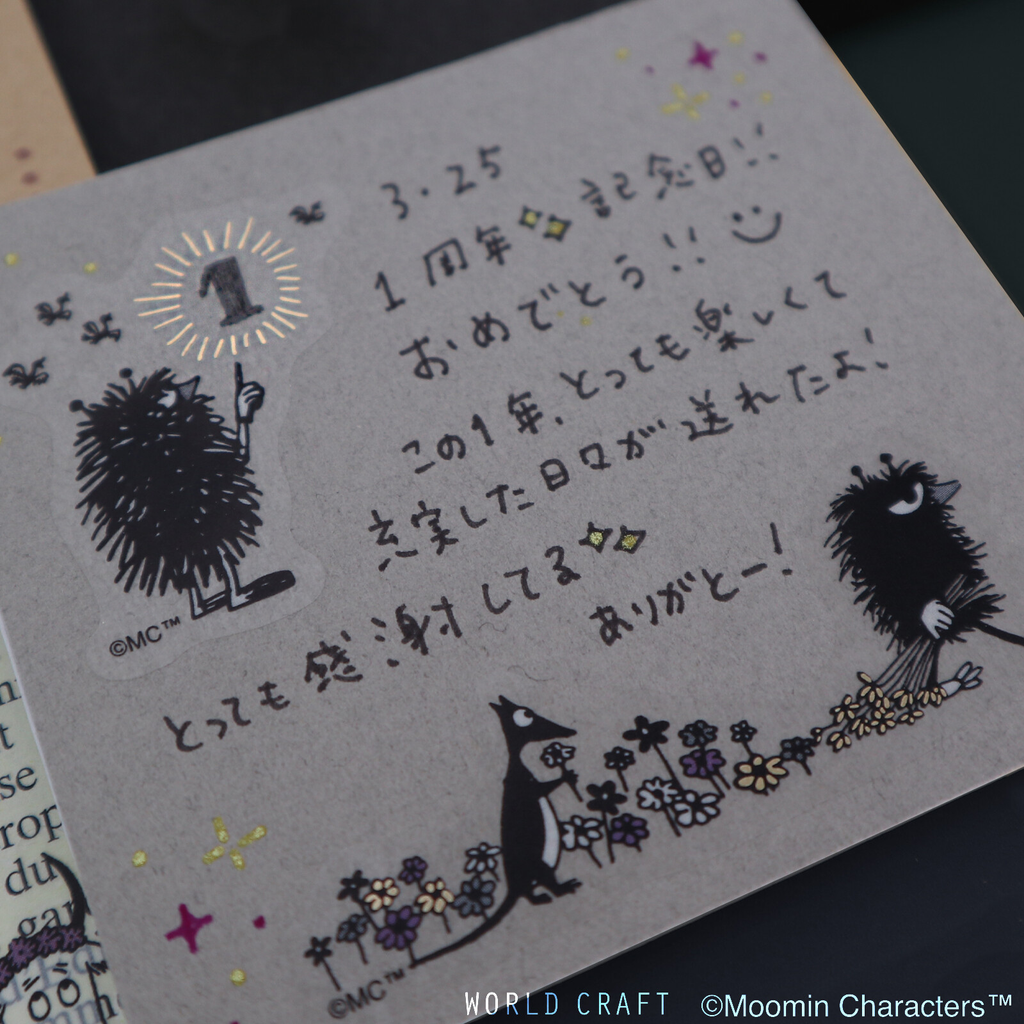 3・25
1周年記念日!!
おめでとう!!
この1年、とっても楽しくて
充実した日々が送れたよ!
とっても感謝してる
ありがとー!
1
©MC™
©MC™
se
rop
du
WORLD CRAFT ©Moomin Characters™